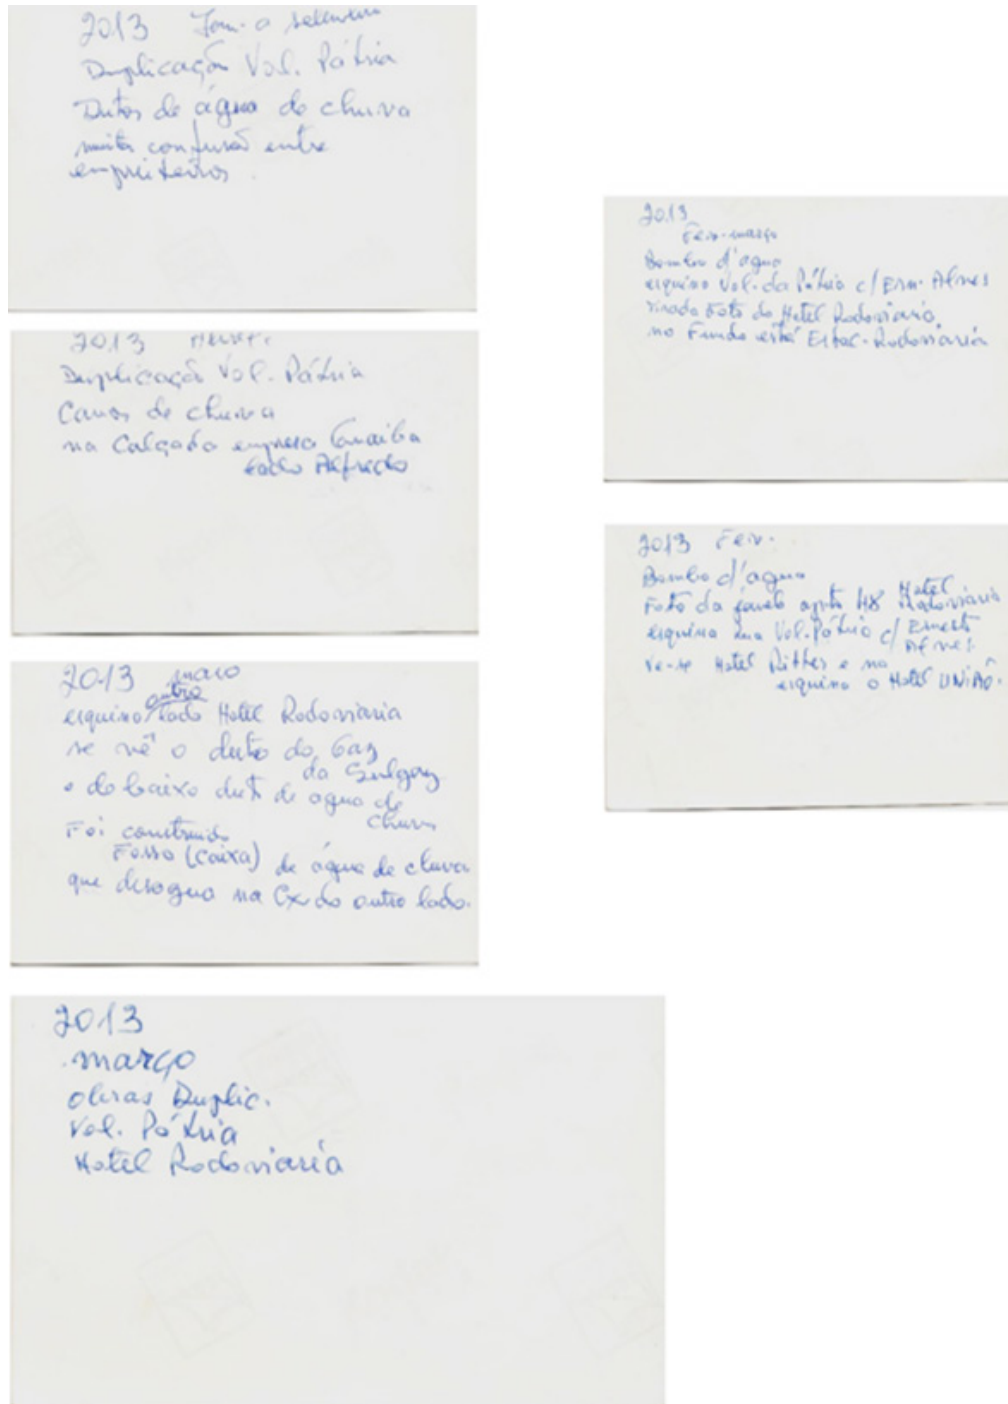 2013 Jan. a setembro
Duplicação Vol. Pátria
Dutos de água de chuva
muita confusão entre
empreiteiros.
2013
Duplicação Vol. Pátria
Canos de chuva
na Calçada empresa
Alfredo
2013 maio
esquina outro lado Hotel Rodoviaria
se vê o duto do Gaz
da Sulgaz
e de baixo duto de agua de
chuva
Foi construido
Fosso (caixa) de água de chuva
que desagua na Cx do outro lado.
2013
março
obras Duplic.
Vol. Pátria
Hotel Rodoviaria
2013
Fev-março
Bomba d'agua
esquina Vol. da Pátria c/ Ern. Alves
tirada Foto do Hotel Rodoviaria
no Fundo está Estac. Rodoviaria
2013 Fev.
Bomba d'agua
Foto da janela apto 48 Hotel Rodoviaria
esquina rua Vol. Pátria c/ Ernesto
Alves
Ve-se Hotel Ritter e na
esquina o Hotel UNIÃO.